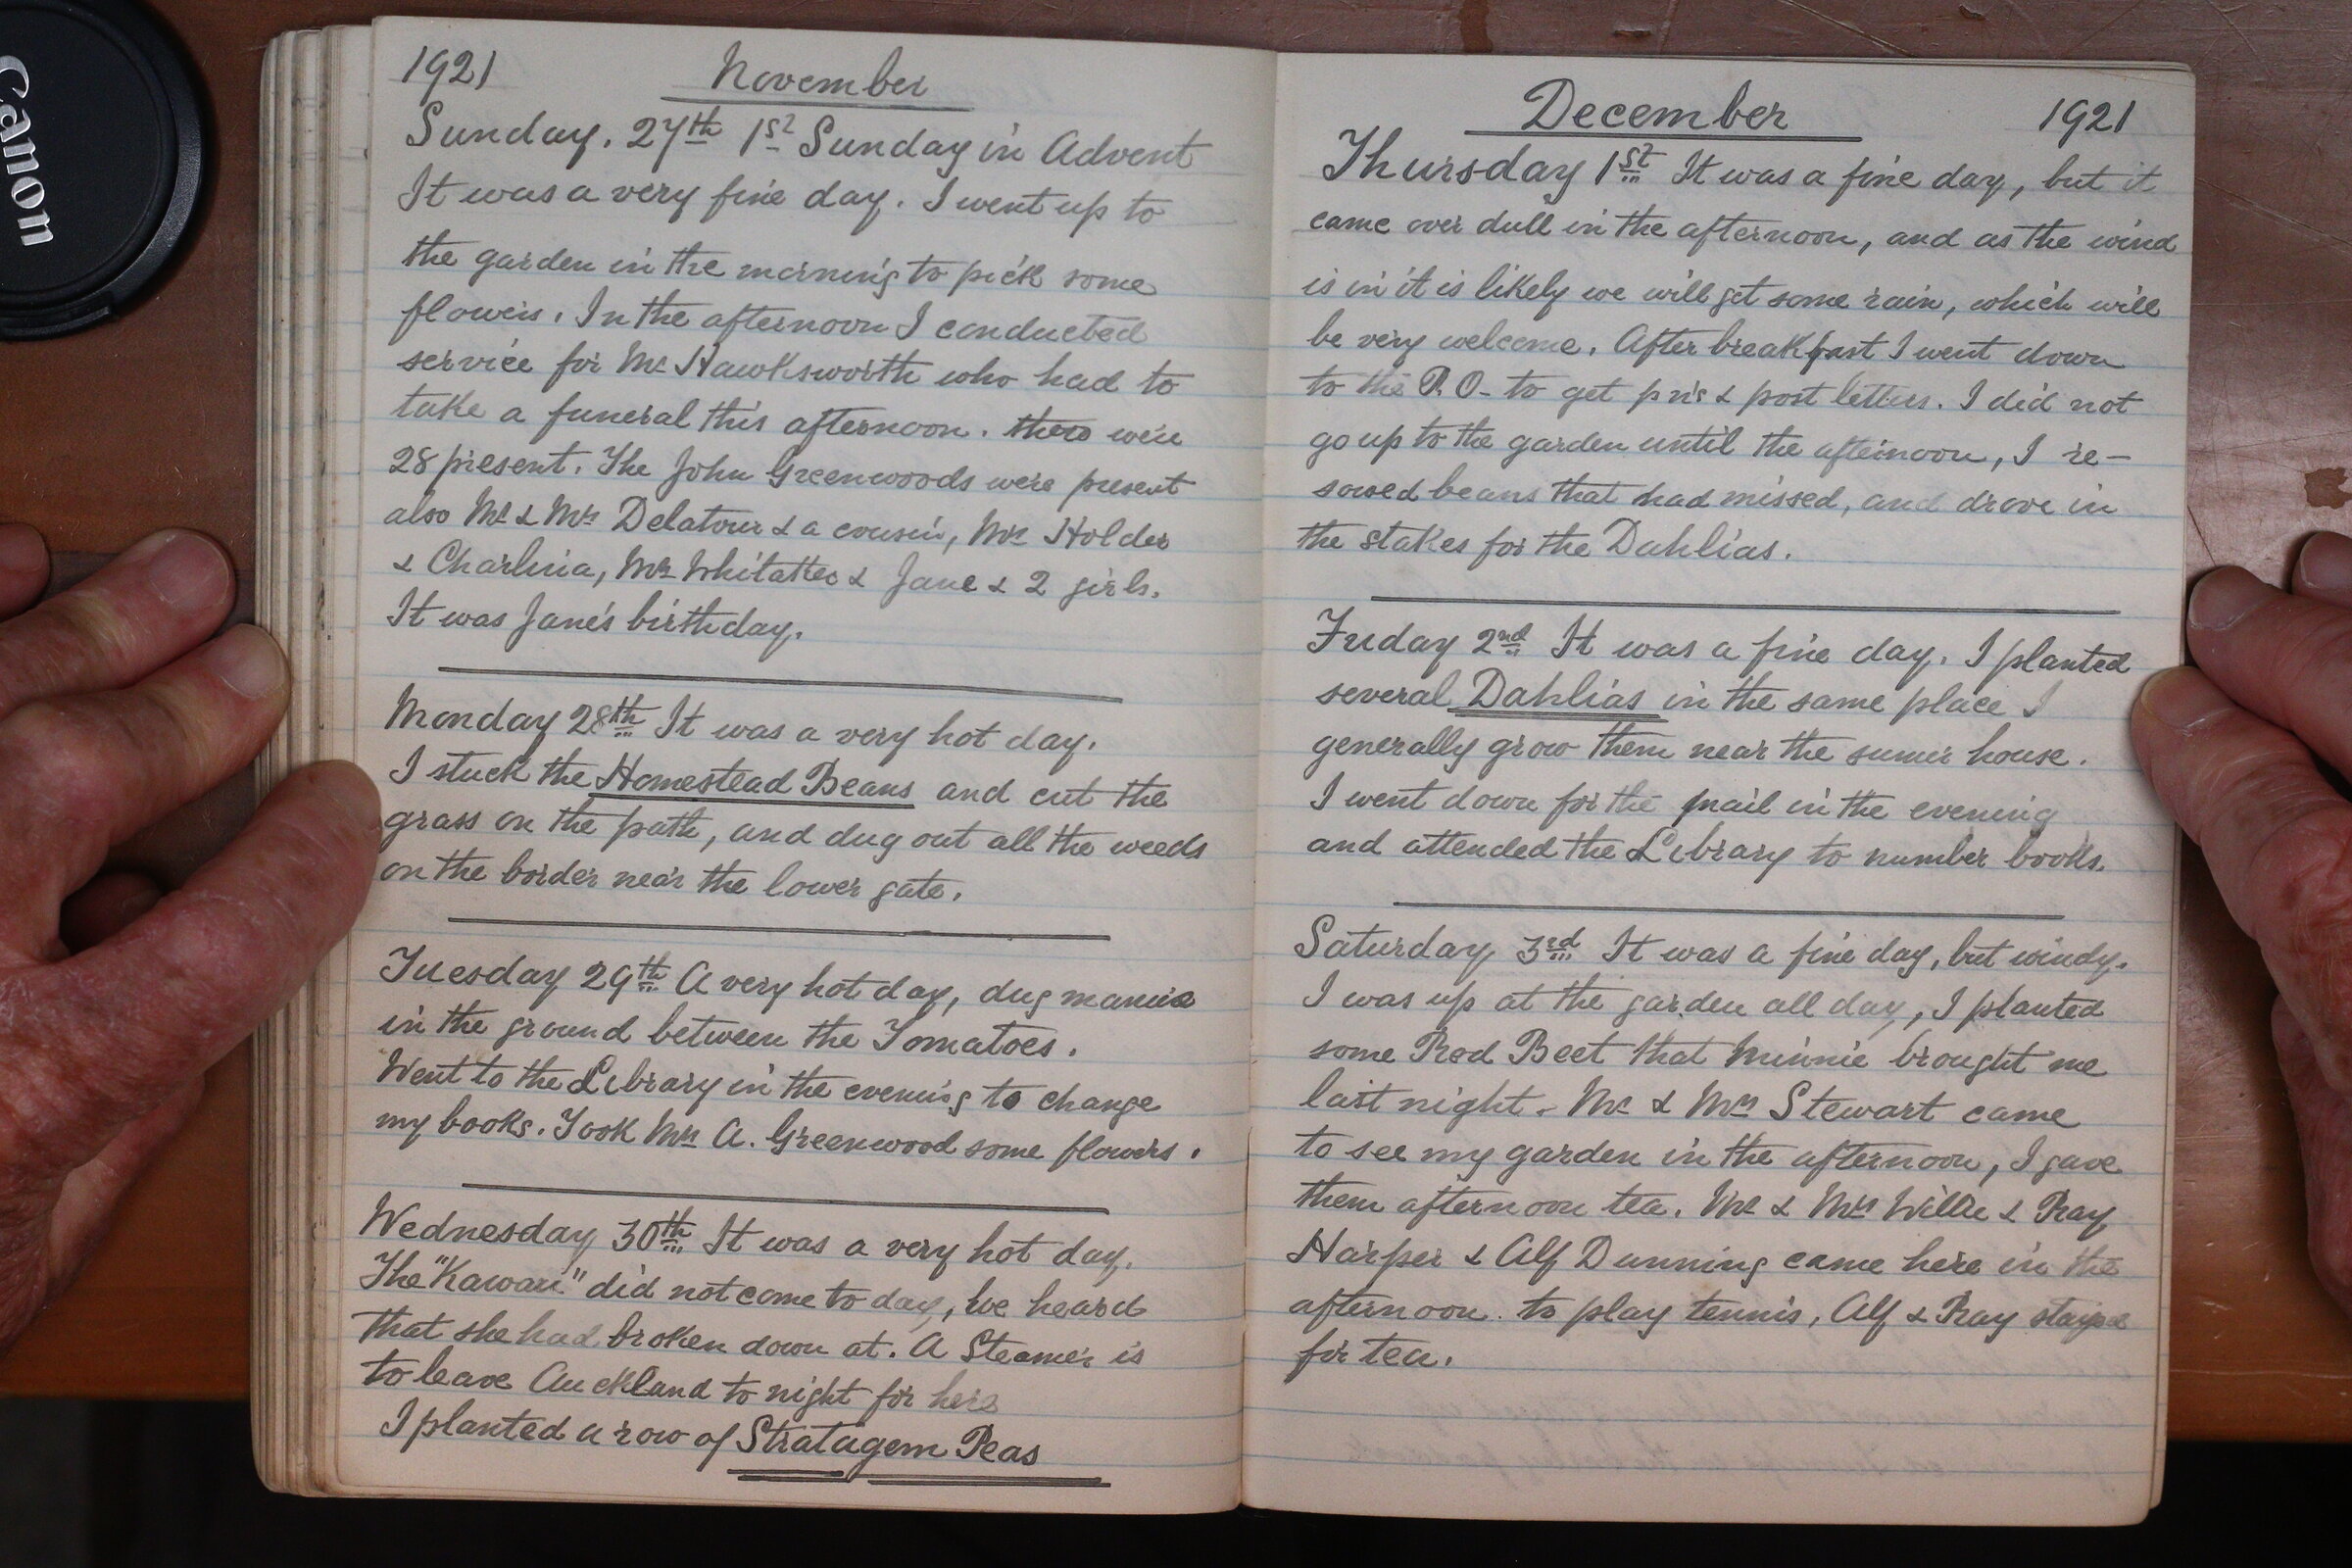 Canon
1921 November
Sunday. 27th 1st Sunday in Advent
It was a very fine day. I went up to
the garden in the morning to pick some
flowers. In the afternoon I conducted
service for Mr Hawksworth who had to
take a funeral this afternoon. there were
28 present. The John Greenwoods were present
also Mr & Mrs Delatour & a cousin, Mrs Holder
& Charlina, Mrs Whitaker & Jane & 2 girls.
It was Jane's birthday.
Monday 28th It was a very hot day.
I stuck the Homestead Beans and cut the
grass on the path, and dug out all the weeds
on the border near the lower gate.
Tuesday 29th A very hot day, dug manure
in the ground between the Tomatoes.
Went to the Library in the evening to change
my books. Took Mrs A. Greenwood some flowers.
Wednesday 30th It was a very hot day.
The "Kawau" did not come to day, we heard
that she had broken down at. A Steamer is
to leave Auckland to night for here
I planted a row of Stratagem Peas
December 1921
Thursday 1st It was a fine day, but it
came over dull in the afternoon, and as the wind
is in it is likely we will get some rain, which will
be very welcome. After breakfast I went down
to the P.O. to get & post letters. I did not
go up to the garden until the afternoon, I re-
sowed beans that had missed, and drove in
the stakes for the Dahlias.
Friday 2nd It was a fine day. I planted
several Dahlias in the same place I
generally grow them near the sumer house.
I went down for the mail in the evening
and attended the Library to number books.
Saturday 3rd It was a fine day, but windy.
I was up at the garden all day, I planted
some Red Beet that Minnie brought me
last night - Mr & Mrs Stewart came
to see my garden in the afternoon, I gave
them afternoon tea. Mr & Mrs Willie & Ray
Harper & Alf Dunning came here in the
afternoon. to play tennis, Alf & Ray stayed
for tea.